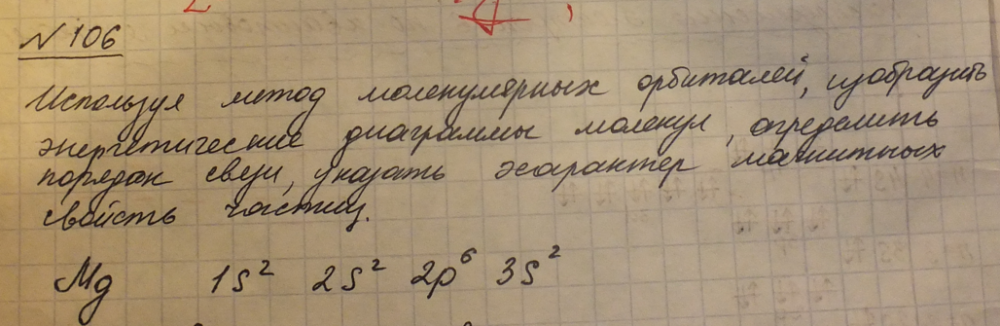 N 106
Используя метод молекулярных орбиталей, изобразить
энергетические диаграммы молекул, определить
порядок связи, указать характер магнитных
свойств частиц.
Mg 1s² 2s² 2p⁶ 3s²